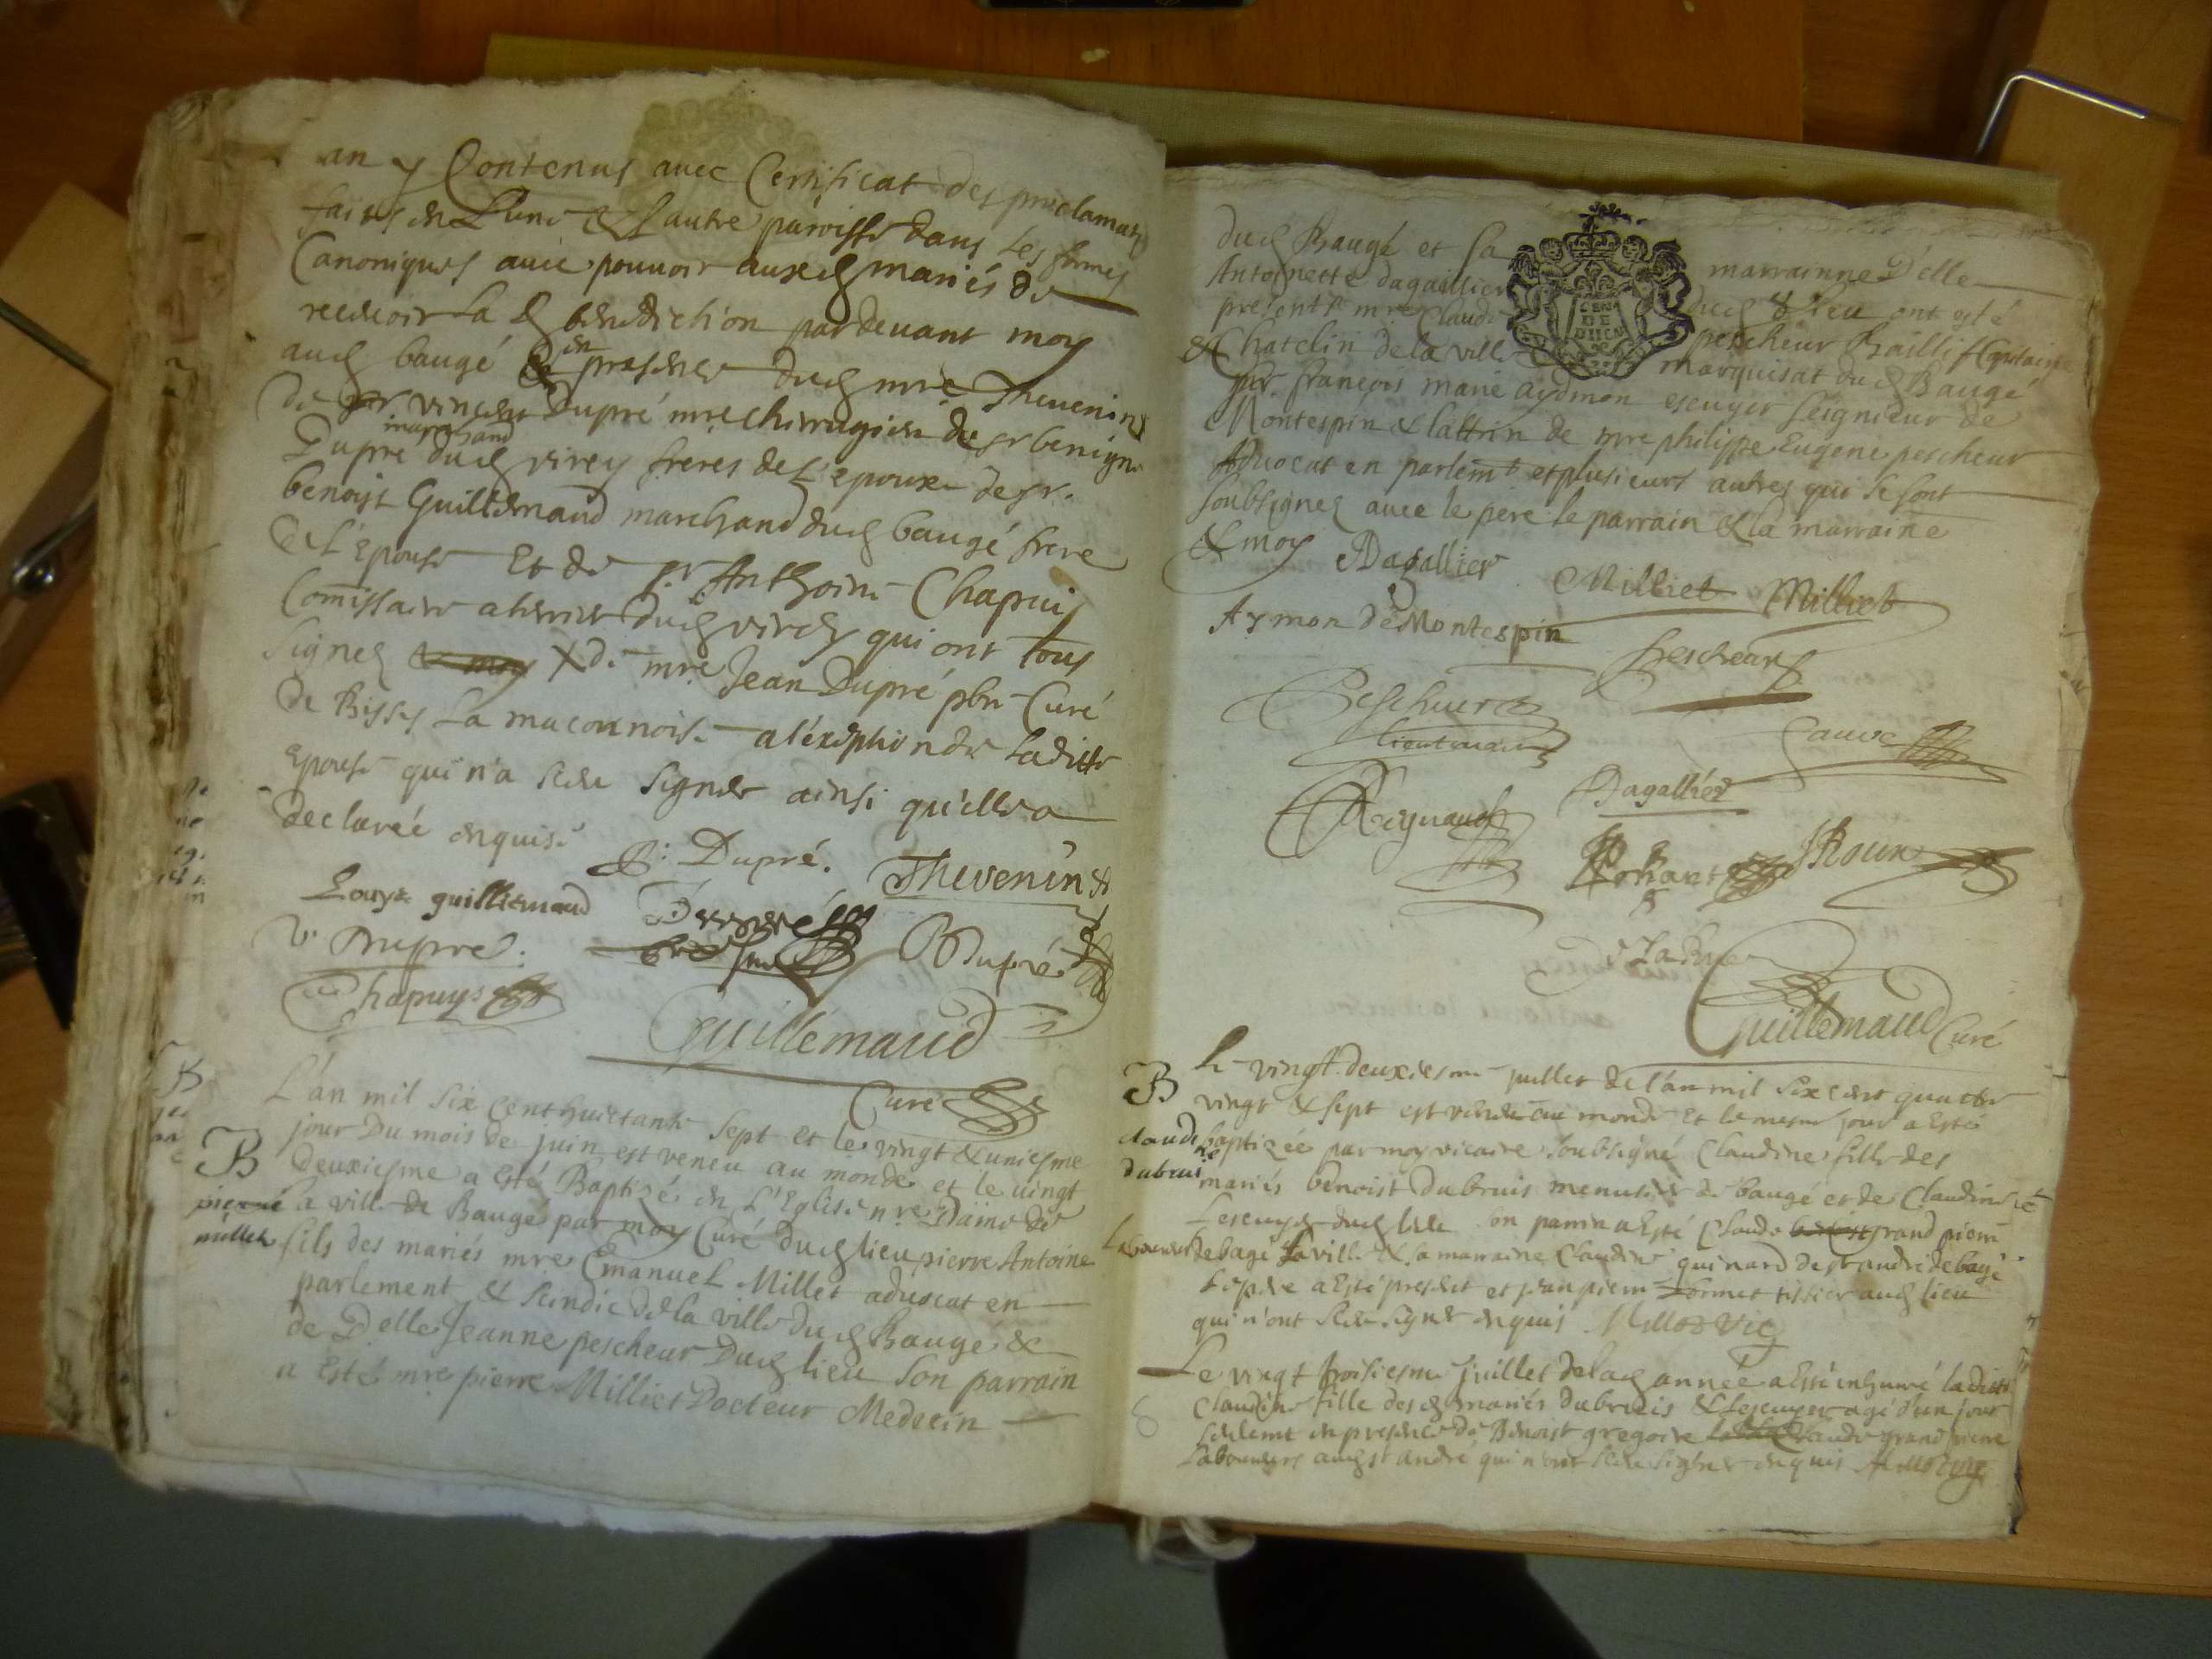 an y Contenus avec Certificat des proclamaõs
faites en L'une & L'autre paroisse dans les formes
Canoniques avec pouvoir auxd mariés de
recevoir la d benediction pardevant moy
aud baugé en presence dud mre Thevenin
de sr. vincent Dupré mre chirurgien de sr benigne
Dupre marchand dud virey freres de L'epoux de sr.
benoist Guillemaud marchand dud baugé frere
de L'Epouse Et de sr Anthoine Chapuis
Commissaire dud virey qui ont tous
signez & moy X de mre Jean Dupré pbre Curé
de Bissy La maconnoise a l'exeption de Laditte
Epouse qui n'a sceu signer ainsi qu'elle a
declarée enquise
B: Dupré. Thevenin
Louyse guillemaud
V. Dupre. Dupré
Chapuys
Guillemaud
Curé
L'an mil six cent huictante sept et le vingt & uniesme
jour Du mois de juin est veneu au monde et le vingt
B deuxiesme a esté Baptizé en L'Eglise nre Dame de
pierre la ville de Baugé par moy Curé dud lieu pierre Antoine
millet fils des mariés mre Emanuel Millet advocat en
parlement & scindic de la ville dud Baugé &
de Delle Jeanne pescheur Dud lieu son parrain
a esté mre pierre Milliet Docteur Medecin
dud Baugé et sa marrainne D'elle
Antoinette dagallier dud Lieu ont esté
present mre Claude pescheur Baillif Capitaine
& Chatelin de la ville marquisat dud Baugé
sr. françois marie aydmon escuyer seigneur de
Montespin & lattrin de mre philippe Eugene pescheur
Advocat en parlemt et plusieurs autres qui se sont
soubsignez avec le pere le parrain & la marraine
& moy Dagallier Milliet Milliet
Aymon de Montespin
Pescheur
Pescheur
lieutenant
Sauve
Reynaud
Dagallier
Roux
Guillemaud Curé
B Le vingt deuxiesme juillet de l'an mil six cent quatre
vingt & sept est venue au monde Et le mesme jour a esté
claudine baptizée par moy vicaire soubsigné Claudine fille des
dubruis mariés benoist Dubruis menusier de baugé et de Claudine
Lescuyer dud lieu son parrin a esté Claude grand pierre
Laboureur de bagé La ville & sa marraine Claudine guinard de st andré de bagé
Le pere a esté present et jean pierre tissier aud lieu
qui n'ont sceu signer enquis Millet Vic
Le vingt troisiesme juillet de lad année a esté inhumé laditte
Claudine fille desd mariés dubruis & Lescuyer agé d'un jour
seulemt en presence de Benoist gregoire Claude grand pierre
Laboureurs aud st andré qui n'ont sceu signer enquis